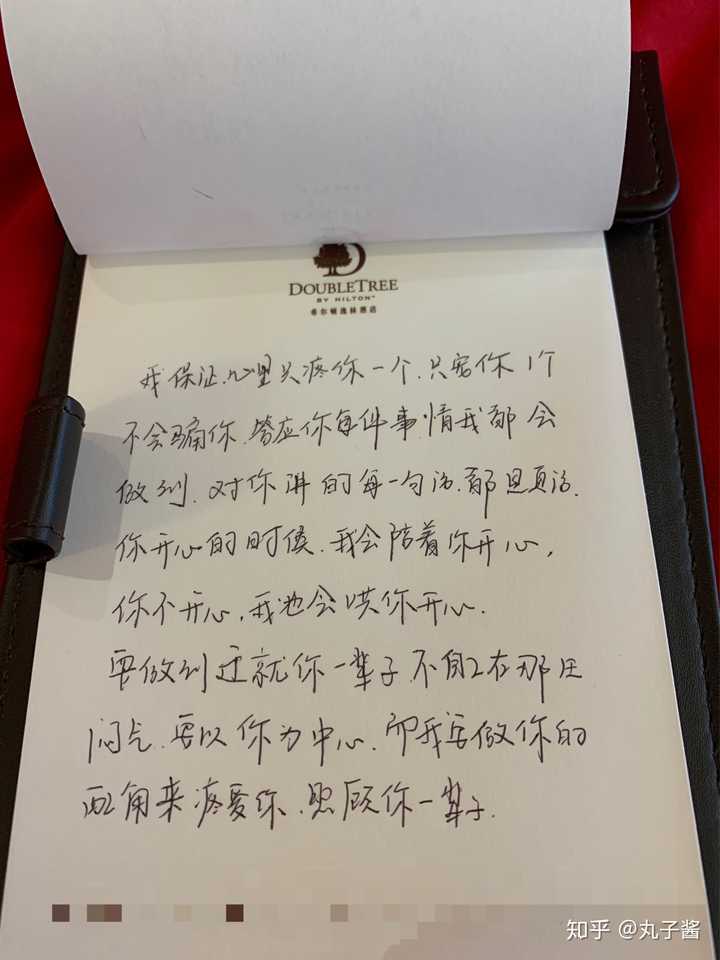 DOUBLETREE
BY HILTON™
希尔顿逸林酒店
我保证.心里只疼你一个.只宠你1个
不会骗你.答应你每件事情我都会
做到.对你讲的每一句话.都是真话.
你开心的时候.我会陪着你开心,
你不开心,我也会哄你开心.
要做到迁就你一辈子.不自己在那生
闷气.要以你为中心.而我要做你的
配角来疼爱你.照顾你一辈子.
知乎 @丸子酱